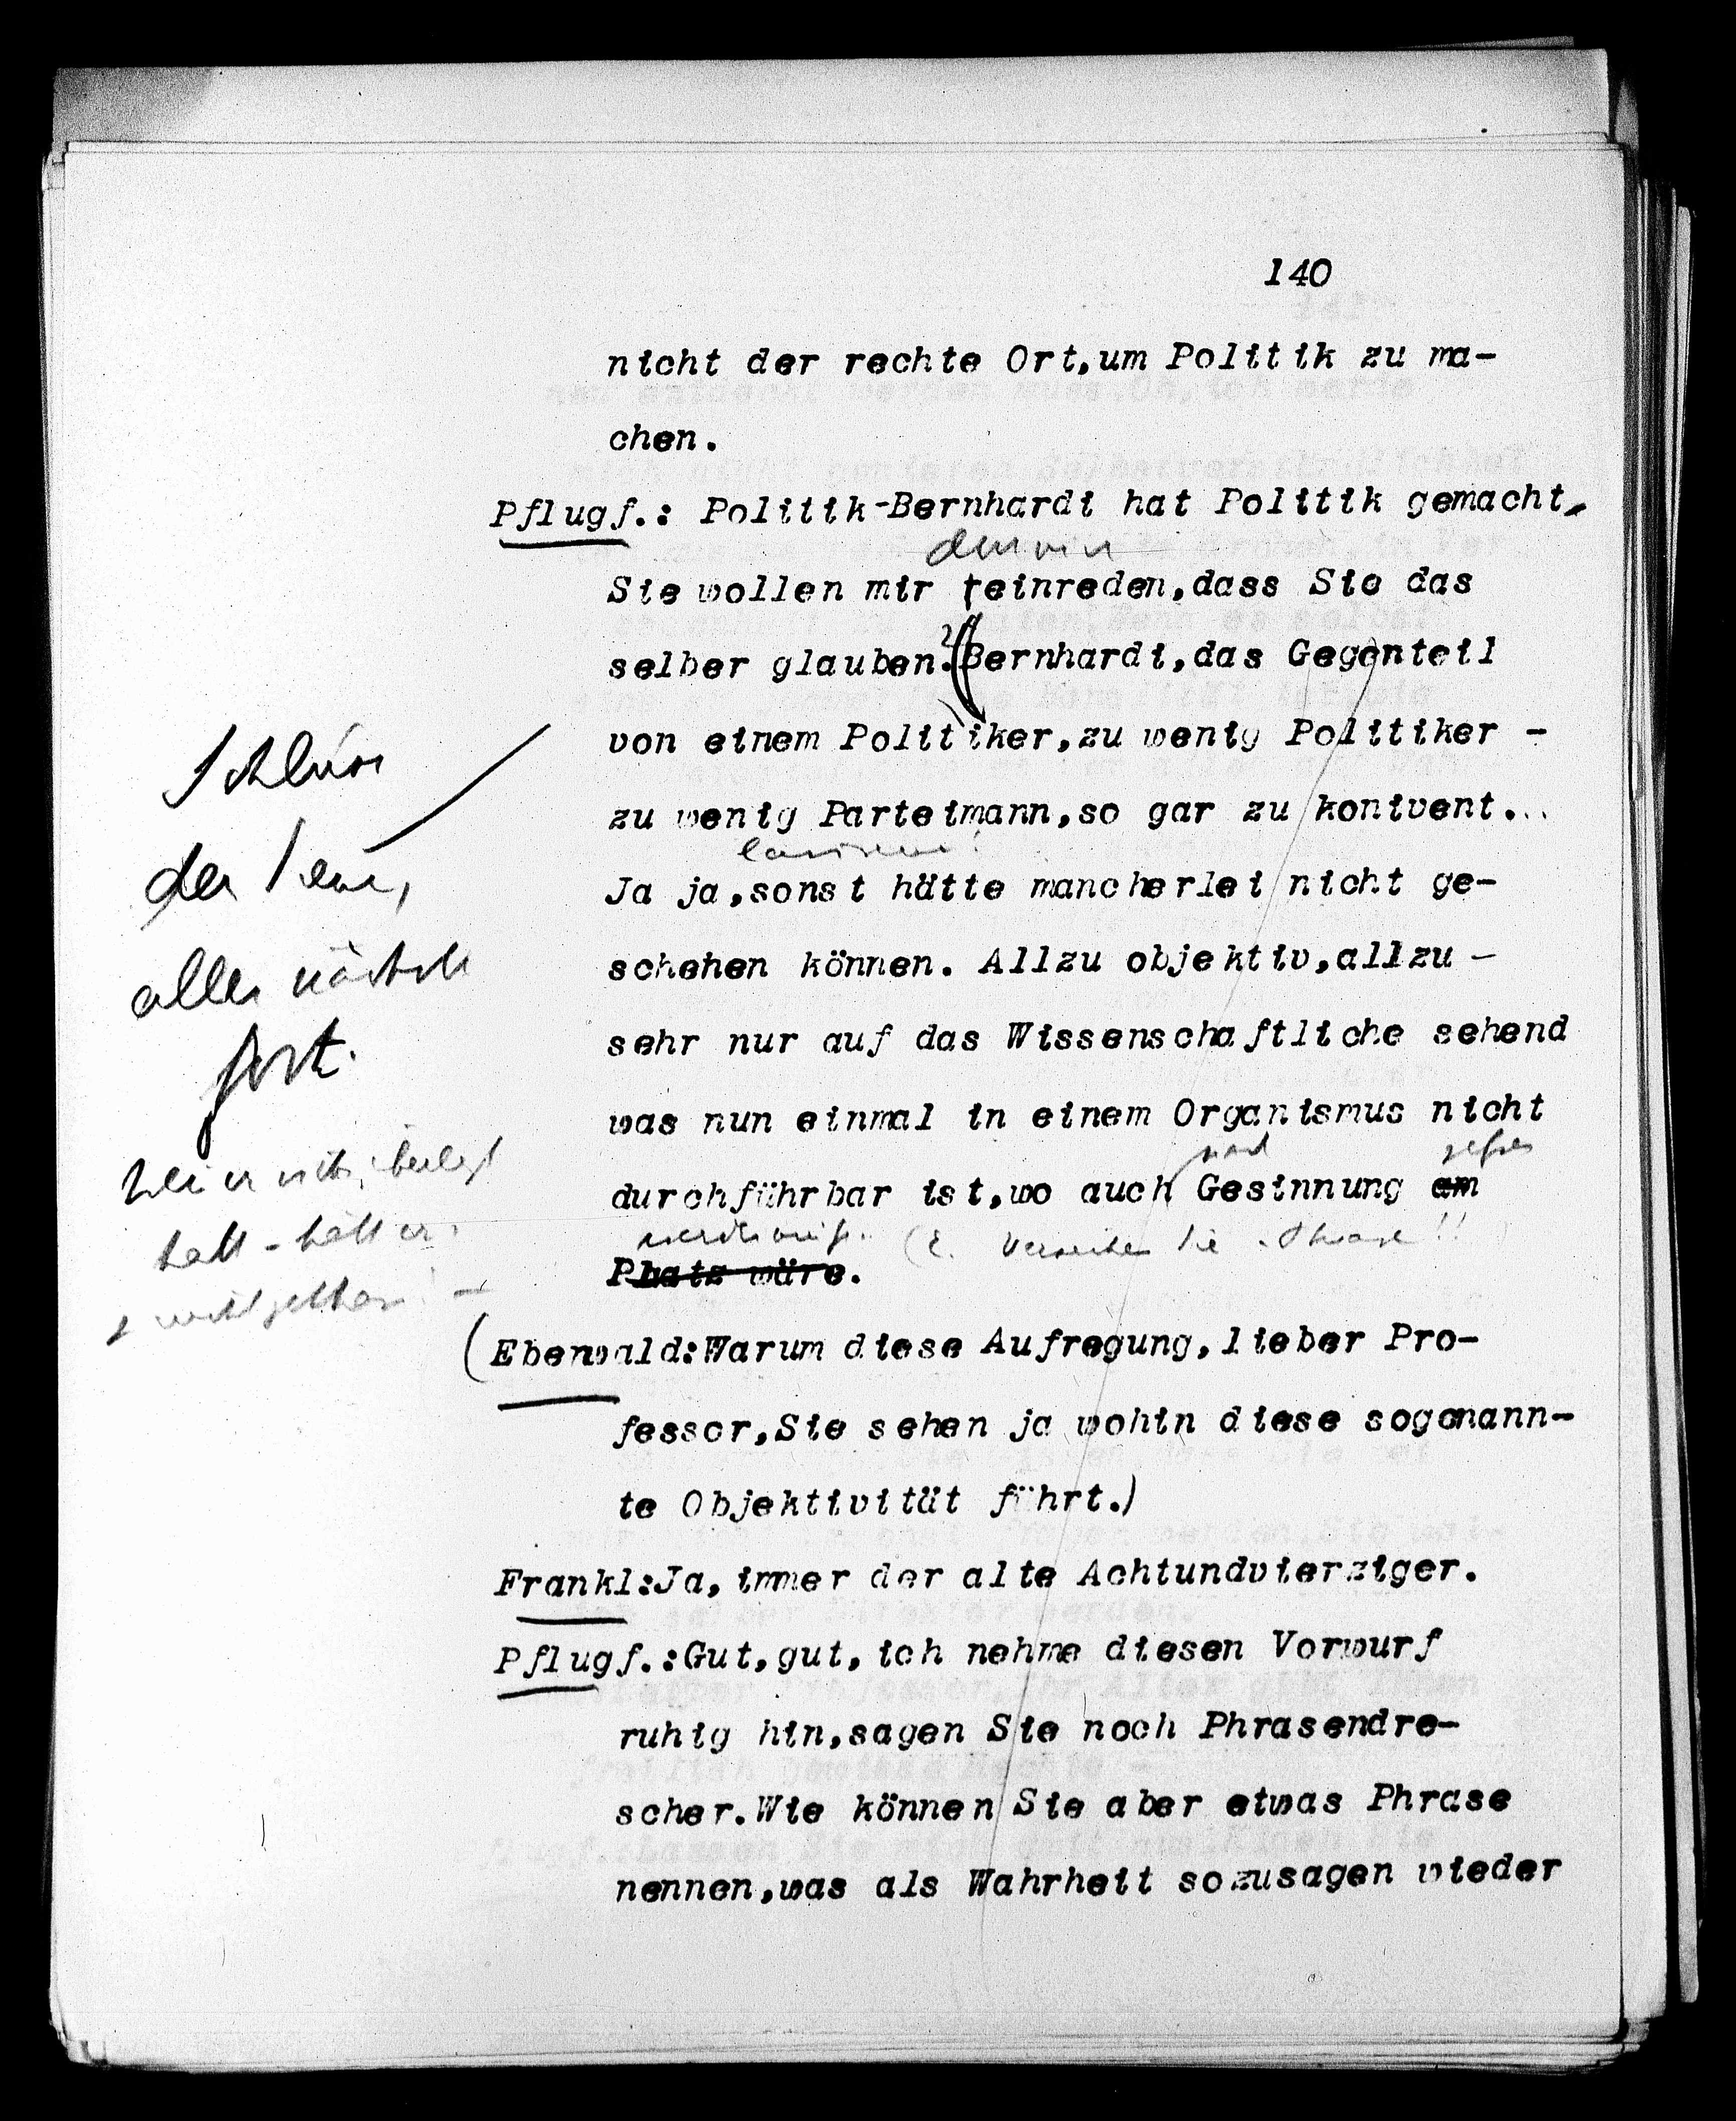 140
nicht der rechte Ort,um Politik zu ma-
chen.
Pflugf.: Politik-Bernhardi hat Politik gemacht,
Sie wollen mir einreden,dass Sie das
selber glauben.?(Bernhardi,das Gegenteil
von einem Politiker,zu wenig Politiker -
zu wenig Parteimann,so gar zu konivent...
Ja ja,sonst hätte mancherlei nicht ge-
schehen können. Allzu objektiv,allzu -
sehr nur auf das Wissenschaftliche sehend
was nun einmal in einem Organismus nicht
durchführbar ist,wo auch Gesinnung am
Platz wäre.
(E. Verzeihen Sie Phrase!!
Schluss
der
alles nächste
fort.
(Ebenwald:Warum diese Aufregung,lieber Pro-
fessor,Sie sehen ja wohin diese sogenann-
te Objektivität führt.)
Frankl:Ja,immer der alte Achtundvierziger.
Pflugf.:Gut,gut,ich nehme diesen Vorwurf
ruhig hin,sagen Sie noch Phrasendre-
scher.Wie können Sie aber etwas Phrase
nennen,was als Wahrheit sozusagen wieder